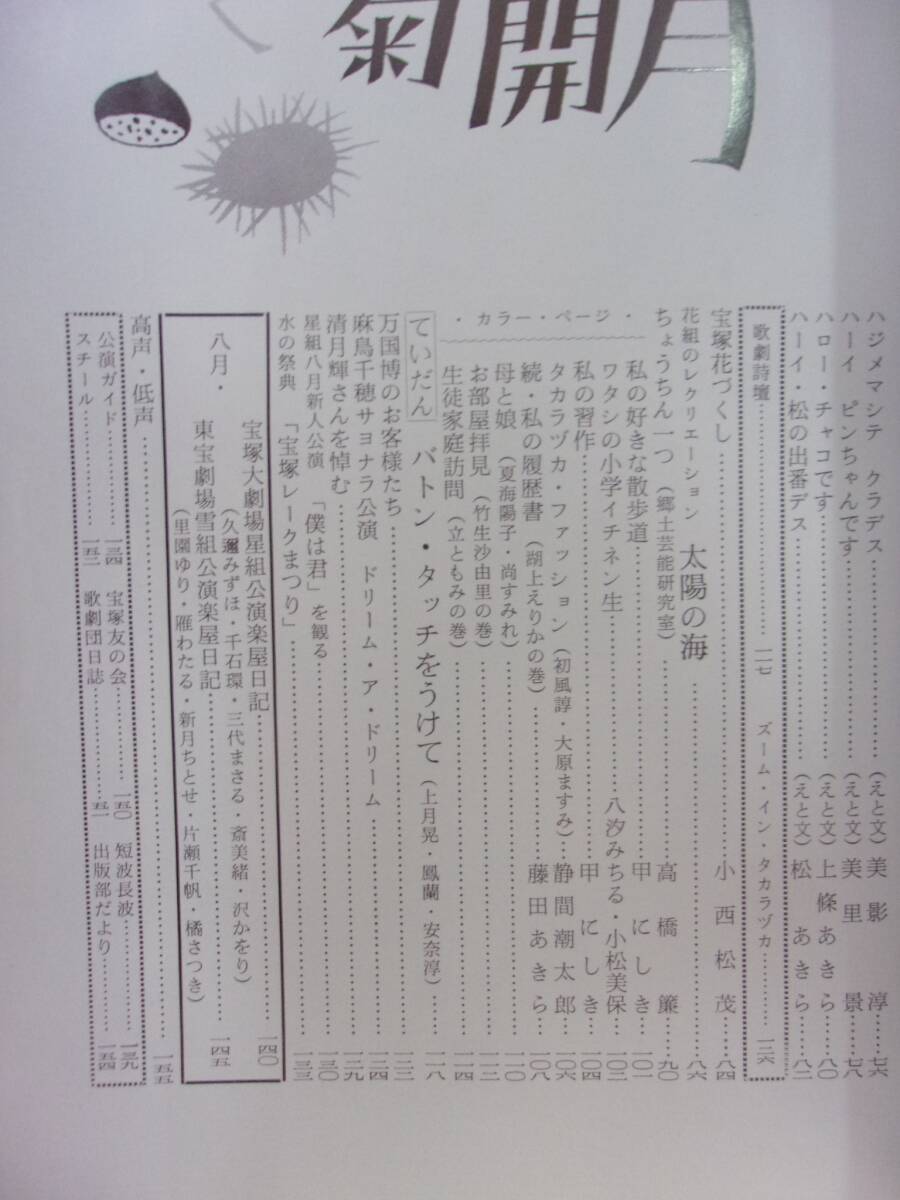 菊開月
ハジメマシテ　クラデス……（えと文）美影　淳……七六
ハーイ　ピンちゃんです……（えと文）美里　景……七八
ハロー・チャコです……（えと文）上條あきら……八〇
ハーイ・松の出番デス……（えと文）松　あきら……八二
歌劇詩壇……一一七　ズーム・イン・タカラヅカ……一三六
宝塚花づくし……小西松茂……八四
花組のレクリエーション　太陽の海……八六
ちょうちん一つ（郷土芸能研究室）……高橋　簾……九〇
・カラー・ページ・
私の好きな散歩道……甲にしき……一〇一
ワタシの小学イチネン生……八汐みちる・小松美保……一〇三
私の習作……甲にしき……一〇四
タカラヅカ・ファッション（初風諄・大原ますみ）……静間潮太郎……一〇六
続・私の履歴書（湖上えりかの巻）……藤田あきら……一〇八
母と娘（夏海陽子・尚すみれ）……一一〇
お部屋拝見（竹生沙由里の巻）……一一二
生徒家庭訪問（立ともみの巻）……一一四
ていだん　バトン・タッチをうけて（上月晃・鳳蘭・安奈淳）……一一八
万国博のお客様たち……一二三
麻鳥千穂サヨナラ公演　ドリーム・ア・ドリーム……一二四
清月輝さんを悼む……一二九
星組八月新人公演　「僕は君」を観る……一三〇
水の祭典　「宝塚レークまつり」……一三三
八月・
宝塚大劇場星組公演楽屋日記……一四〇
（久邇みずほ・千石環・三代まさる・斎美緒・沢かをり）
東宝劇場雪組公演楽屋日記……一四五
（里園ゆり・雁わたる・新月ちとせ・片瀬千帆・橘さつき）
高声・低声……一五五
公演ガイド……一三四　宝塚友の会……一五〇　短波長波……一三九
スチール……一五二　歌劇団日誌……一五一　出版部だより……一五四